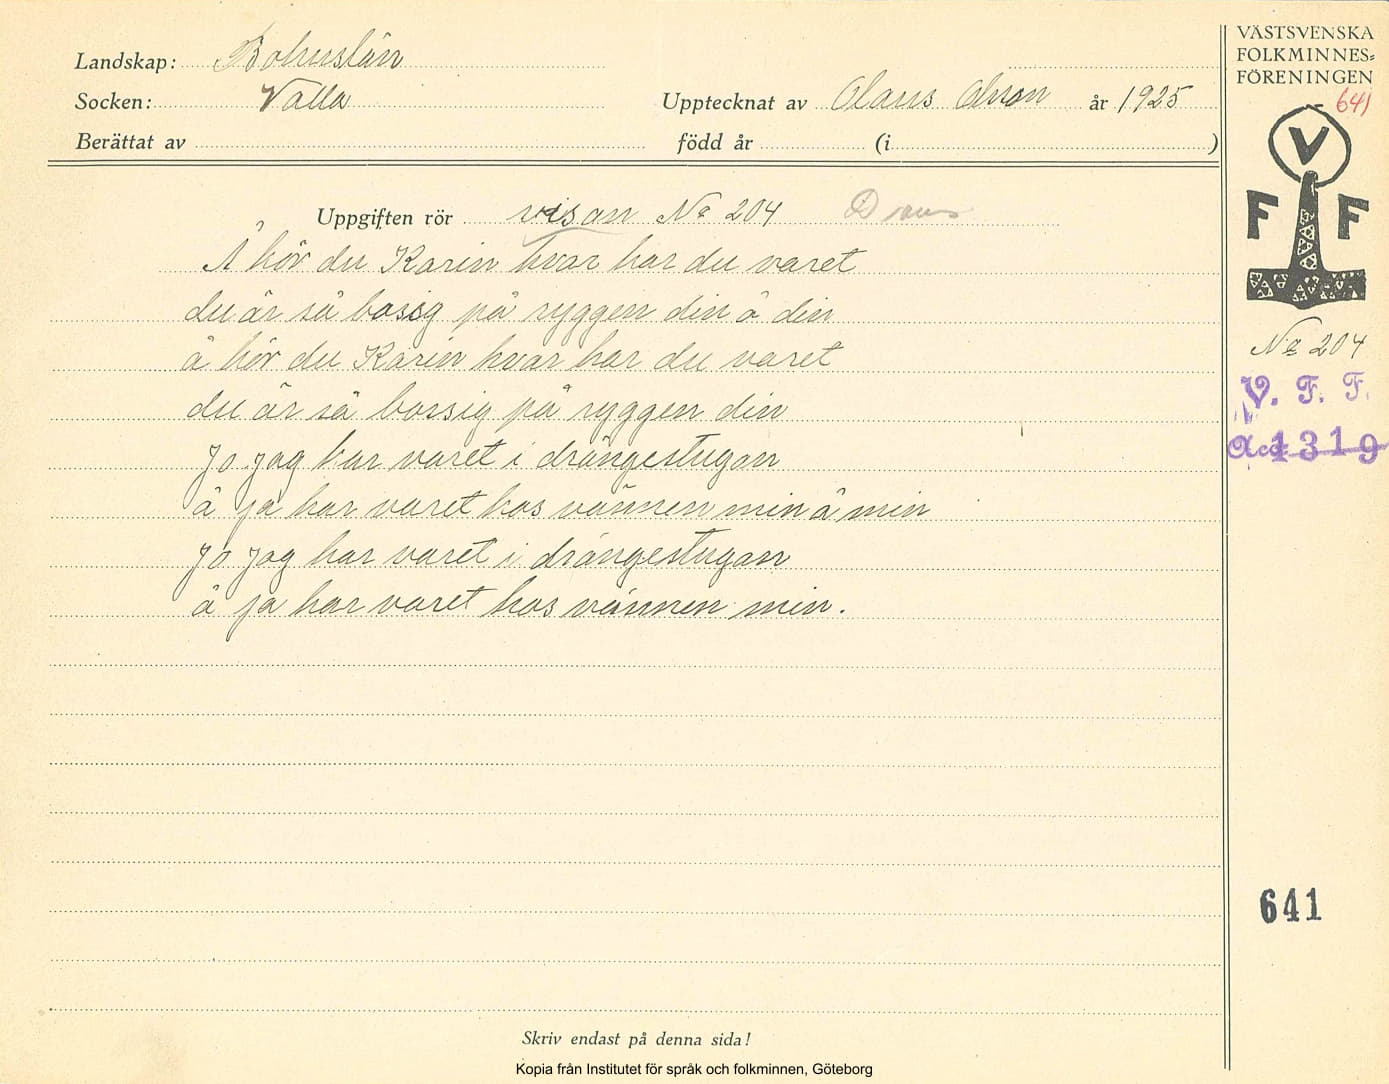 Landskap: Bohuslän
Socken: Valla
Upptecknat av Olaus Olsson år 1925
Berättat av
född år (i )
Uppgiften rör visan No 204
Å hör du Karin hvar har du varet
du är så bossig på ryggen din å din
å hör du Karin hvar har du varet
du är så bossig på ryggen din
Jo jag har varet i drängestugan
å ja har varet hos vännen min å min
Jo jag har varet i drängestugan
å ja har varet hos vännen min.
Skriv endast på denna sida!
Kopia från Institutet för språk och folkminnen, Göteborg
VÄSTSVENSKA
FOLKMINNES=
FÖRENINGEN
641
V
F F
No 204
V. F. F.
Acc 1319
641